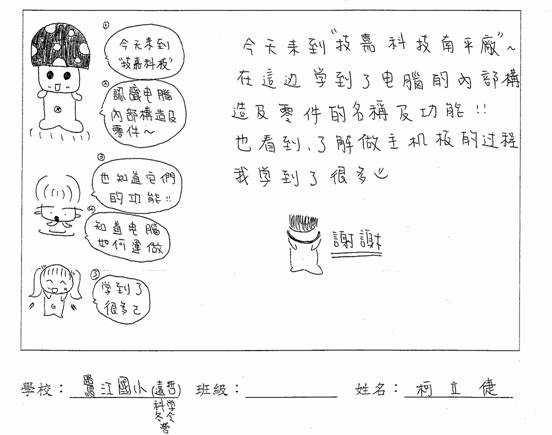 ①
今天来到
"技嘉科技"
②
認識电腦
內部構造及
零件～
③
也知道它們
的功能!!
④
知道电腦
如何運做
⑤
学到了
很多

今天来到"技嘉科技南平廠"～
在這边学到了电腦的內部構
造及零件的名稱及功能!!
也看到、了解做主机板的过程
我學到了很多
謝謝

學校：鷺江國小(遠哲科學冬令營) 班級： 姓名：柯立倢